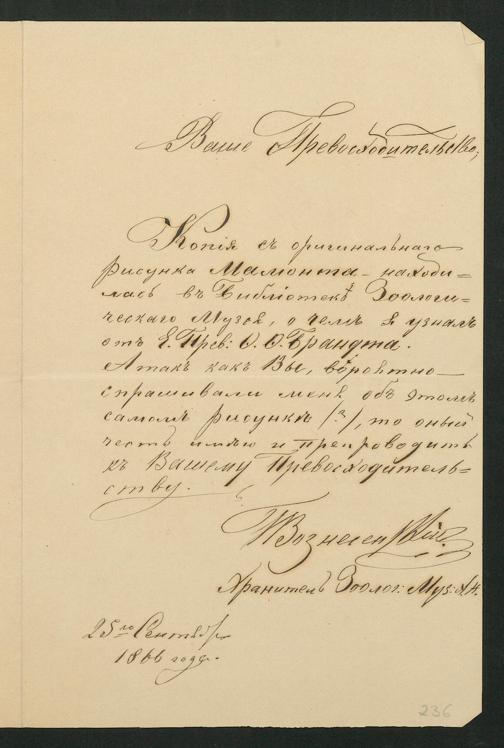 Ваше Превосходительство,
Копія съ оригинальнаго
рисунка Мамонта - находи=
лась въ Библіотекѣ Зоологи=
ческаго Музея, о чемъ я узналъ
отъ Е. Прев: Ѳ. Ѳ. Брандта.
А такъ какъ Вы, вѣроятно
спрашивали меня объ этомъ
самомъ рисункѣ (?), то оный
честь имѣю и препроводить
къ Вашему Превосходитель=
ству.
И Вознесенскій.
Хранитель Зоолог: Муз: А.Н.
25го Сентября
1866 года.
236